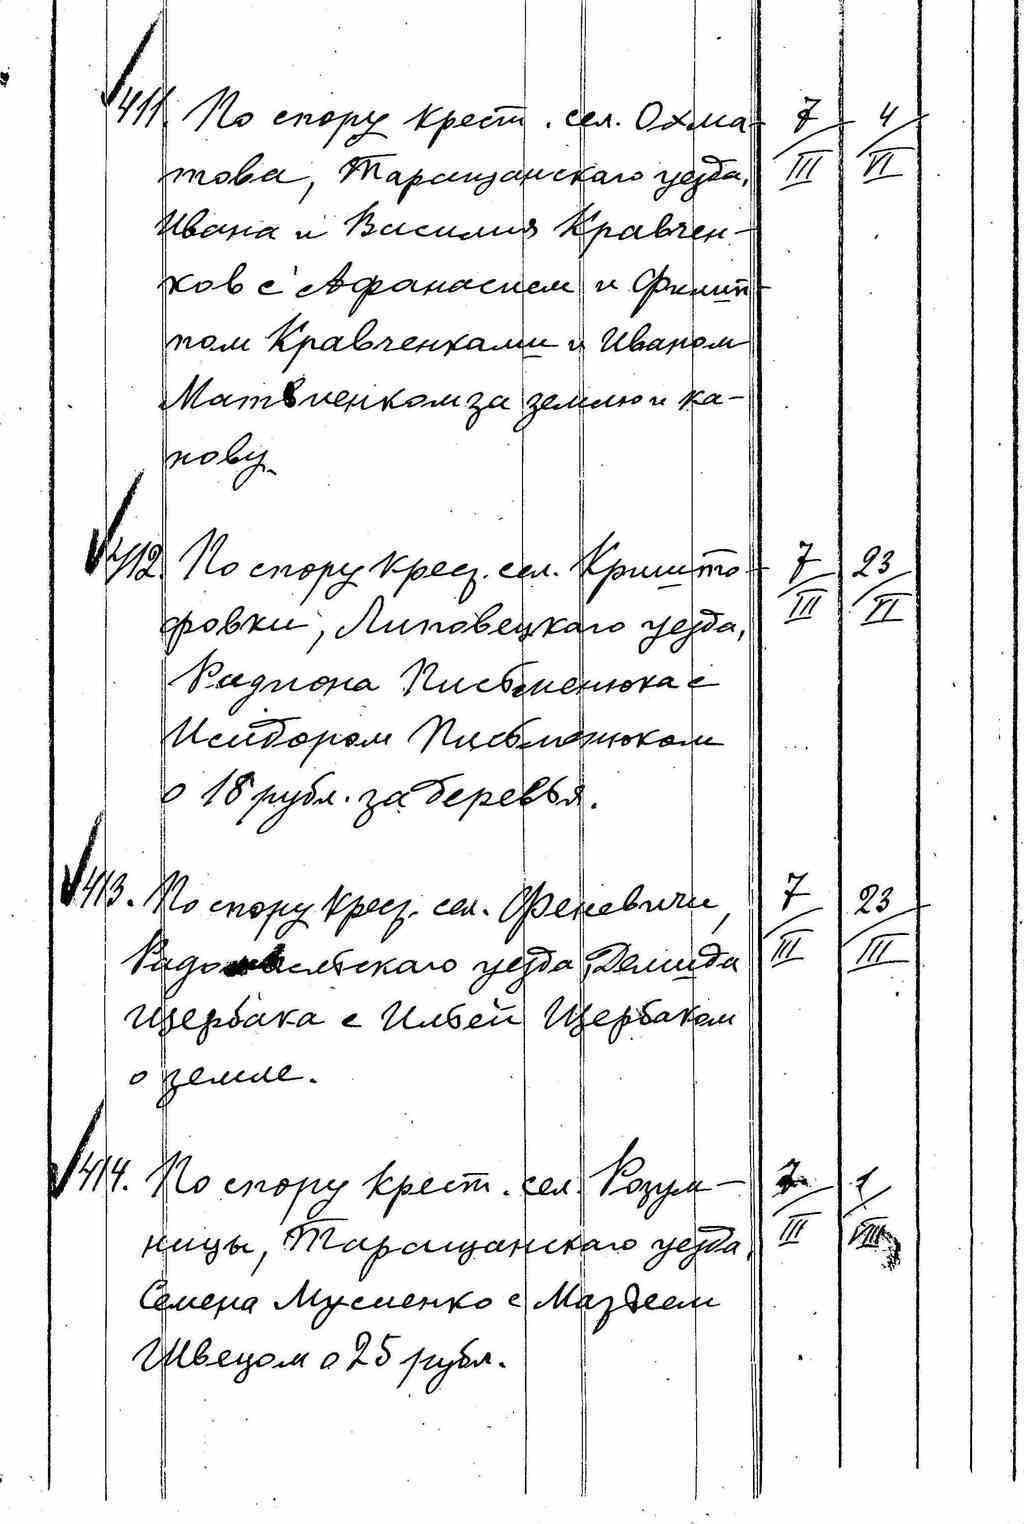 411. По спору крест. сел. Охма- 7/III 4/VI
това, Таращанскаго уезда,
Ивана и Василия Кравчен-
ков с Афанасием и Филип-
пом Кравченками и Иваном
Матвиенком за землю и ка-
нову.
412. По спору крест. сел. Кришто- 7/III 23/VI
фовки, Липовецкаго уезда,
Радиона Письменюка с
Исидором Письменюком
о 18 рубл. за деревья.
413. По спору крест. сел. Феневичи, 7/III 23/III
Радомысльскаго уезда, Демида
Щербака с Ильей Щербаком
о земле.
414. По спору крест. сел. Розум- 7/III 1/VIII
ницы, Таращанскаго уезда,
Семена Мусиенко с
Швецом о 25 рубл.